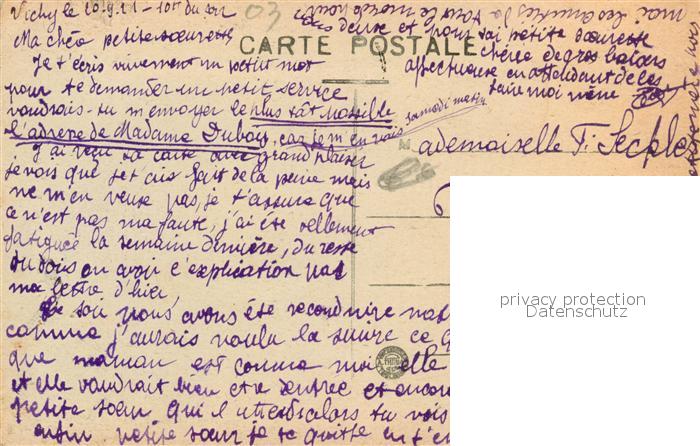 Vichy le 20.9.21 - 10h du soir
03
Ma chère petite soeurette
CARTE POSTALE
Je t'écris vivement un petit mot
pour te demander un petit service
voudrais-tu m'envoyer le plus tôt possible
l'adresse de Madame Dubois, car je m'en vais samedi matin
J'ai reçu ta carte avec grand plaisir
je vois que je t'ai fait de la peine mais
ne m'en veuse pas, je t'assure que
ce n'est pas ma faute, j'ai été tellement
fatiguée la semaine dernière, du reste
tu dois en avoir l'explication par
ma lettre d'hier
Ce soir nous avons été reconduire
comme j'aurais voulu la suivre ce
que maman est comme moi elle
et elle voudrait bien être rentrée et encore
petite soeur qui alors tu vois
enfin petite soeur je te quitte en
moi les amitiés de tout le monde
deux et pour toi petite soeurette
chérie de gros baisers
affectueux en attendant de les
faire moi même
Mademoiselle F.
privacy protection
Datenschutz